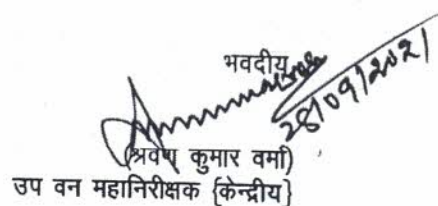 भवदीय
28/09/2021
(श्रवण कुमार वर्मा)
उप वन महानिरीक्षक {केन्द्रीय}